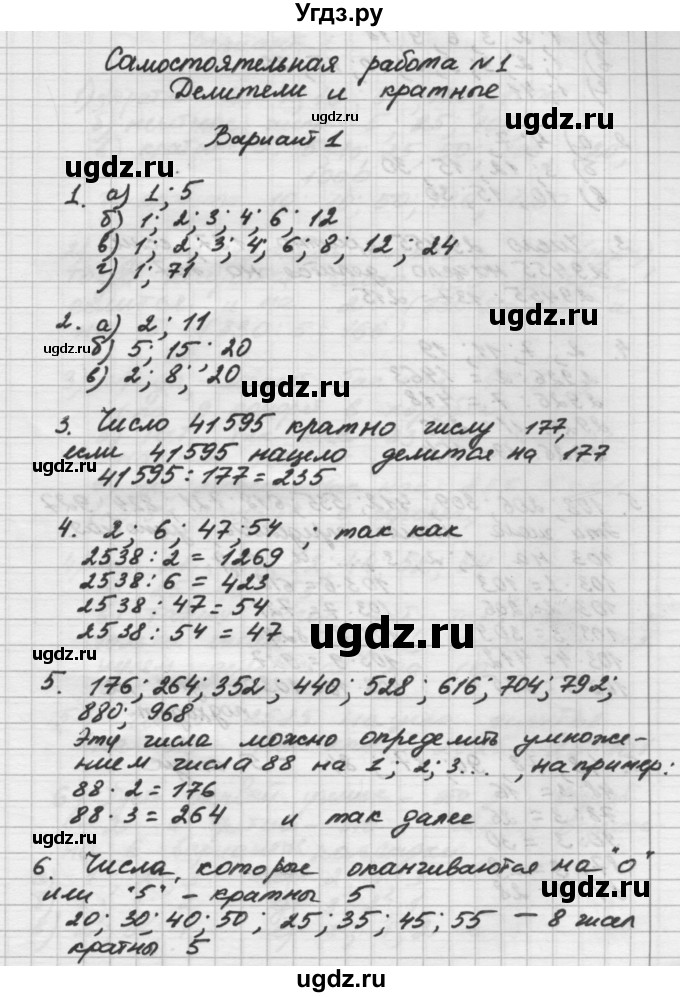 Угдз.ру
Самостоятельная работа №1
Делители и кратные
Вариант 1
1. а) 1; 5
б) 1; 2; 3; 4; 6; 12
в) 1; 2; 3; 4; 6; 8; 12; 24
г) 1; 71
2. а) 2; 11
б) 5; 15; 20
в) 2; 8; 20
3. Число 41595 кратно числу 177,
если 41595 нацело делится на 177
41595 : 177 = 235
4. 2; 6; 47; 54 ; так как
2538 : 2 = 1269
2538 : 6 = 423
2538 : 47 = 54
2538 : 54 = 47
5. 176; 264; 352; 440; 528; 616; 704; 792;
880; 968
Эти числа можно определить умноже-
нием числа 88 на 1; 2; 3... , например:
88 · 2 = 176
88 · 3 = 264 и так далее
6. Числа, которые оканчиваются на "0"
или "5" - кратны 5
20; 30; 40; 50; 25; 35; 45; 55 — 8 чисел
кратны 5
ugdz.ru
ugdz.ru
ugdz.ru
ugdz.ru
ugdz.ru
ugdz.ru
ugdz.ru
ugdz.ru
ugdz.ru
ugdz.ru
ugdz.ru
ugdz.ru
ugdz.ru
ugdz.ru